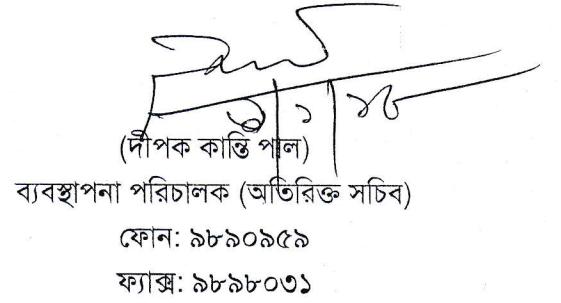 (দীপক কান্তি পাল)
ব্যবস্থাপনা পরিচালক (অতিরিক্ত সচিব)
ফোন: ৯৮৯০৯৫৯
ফ্যাক্স: ৯৮৯৮০৩১